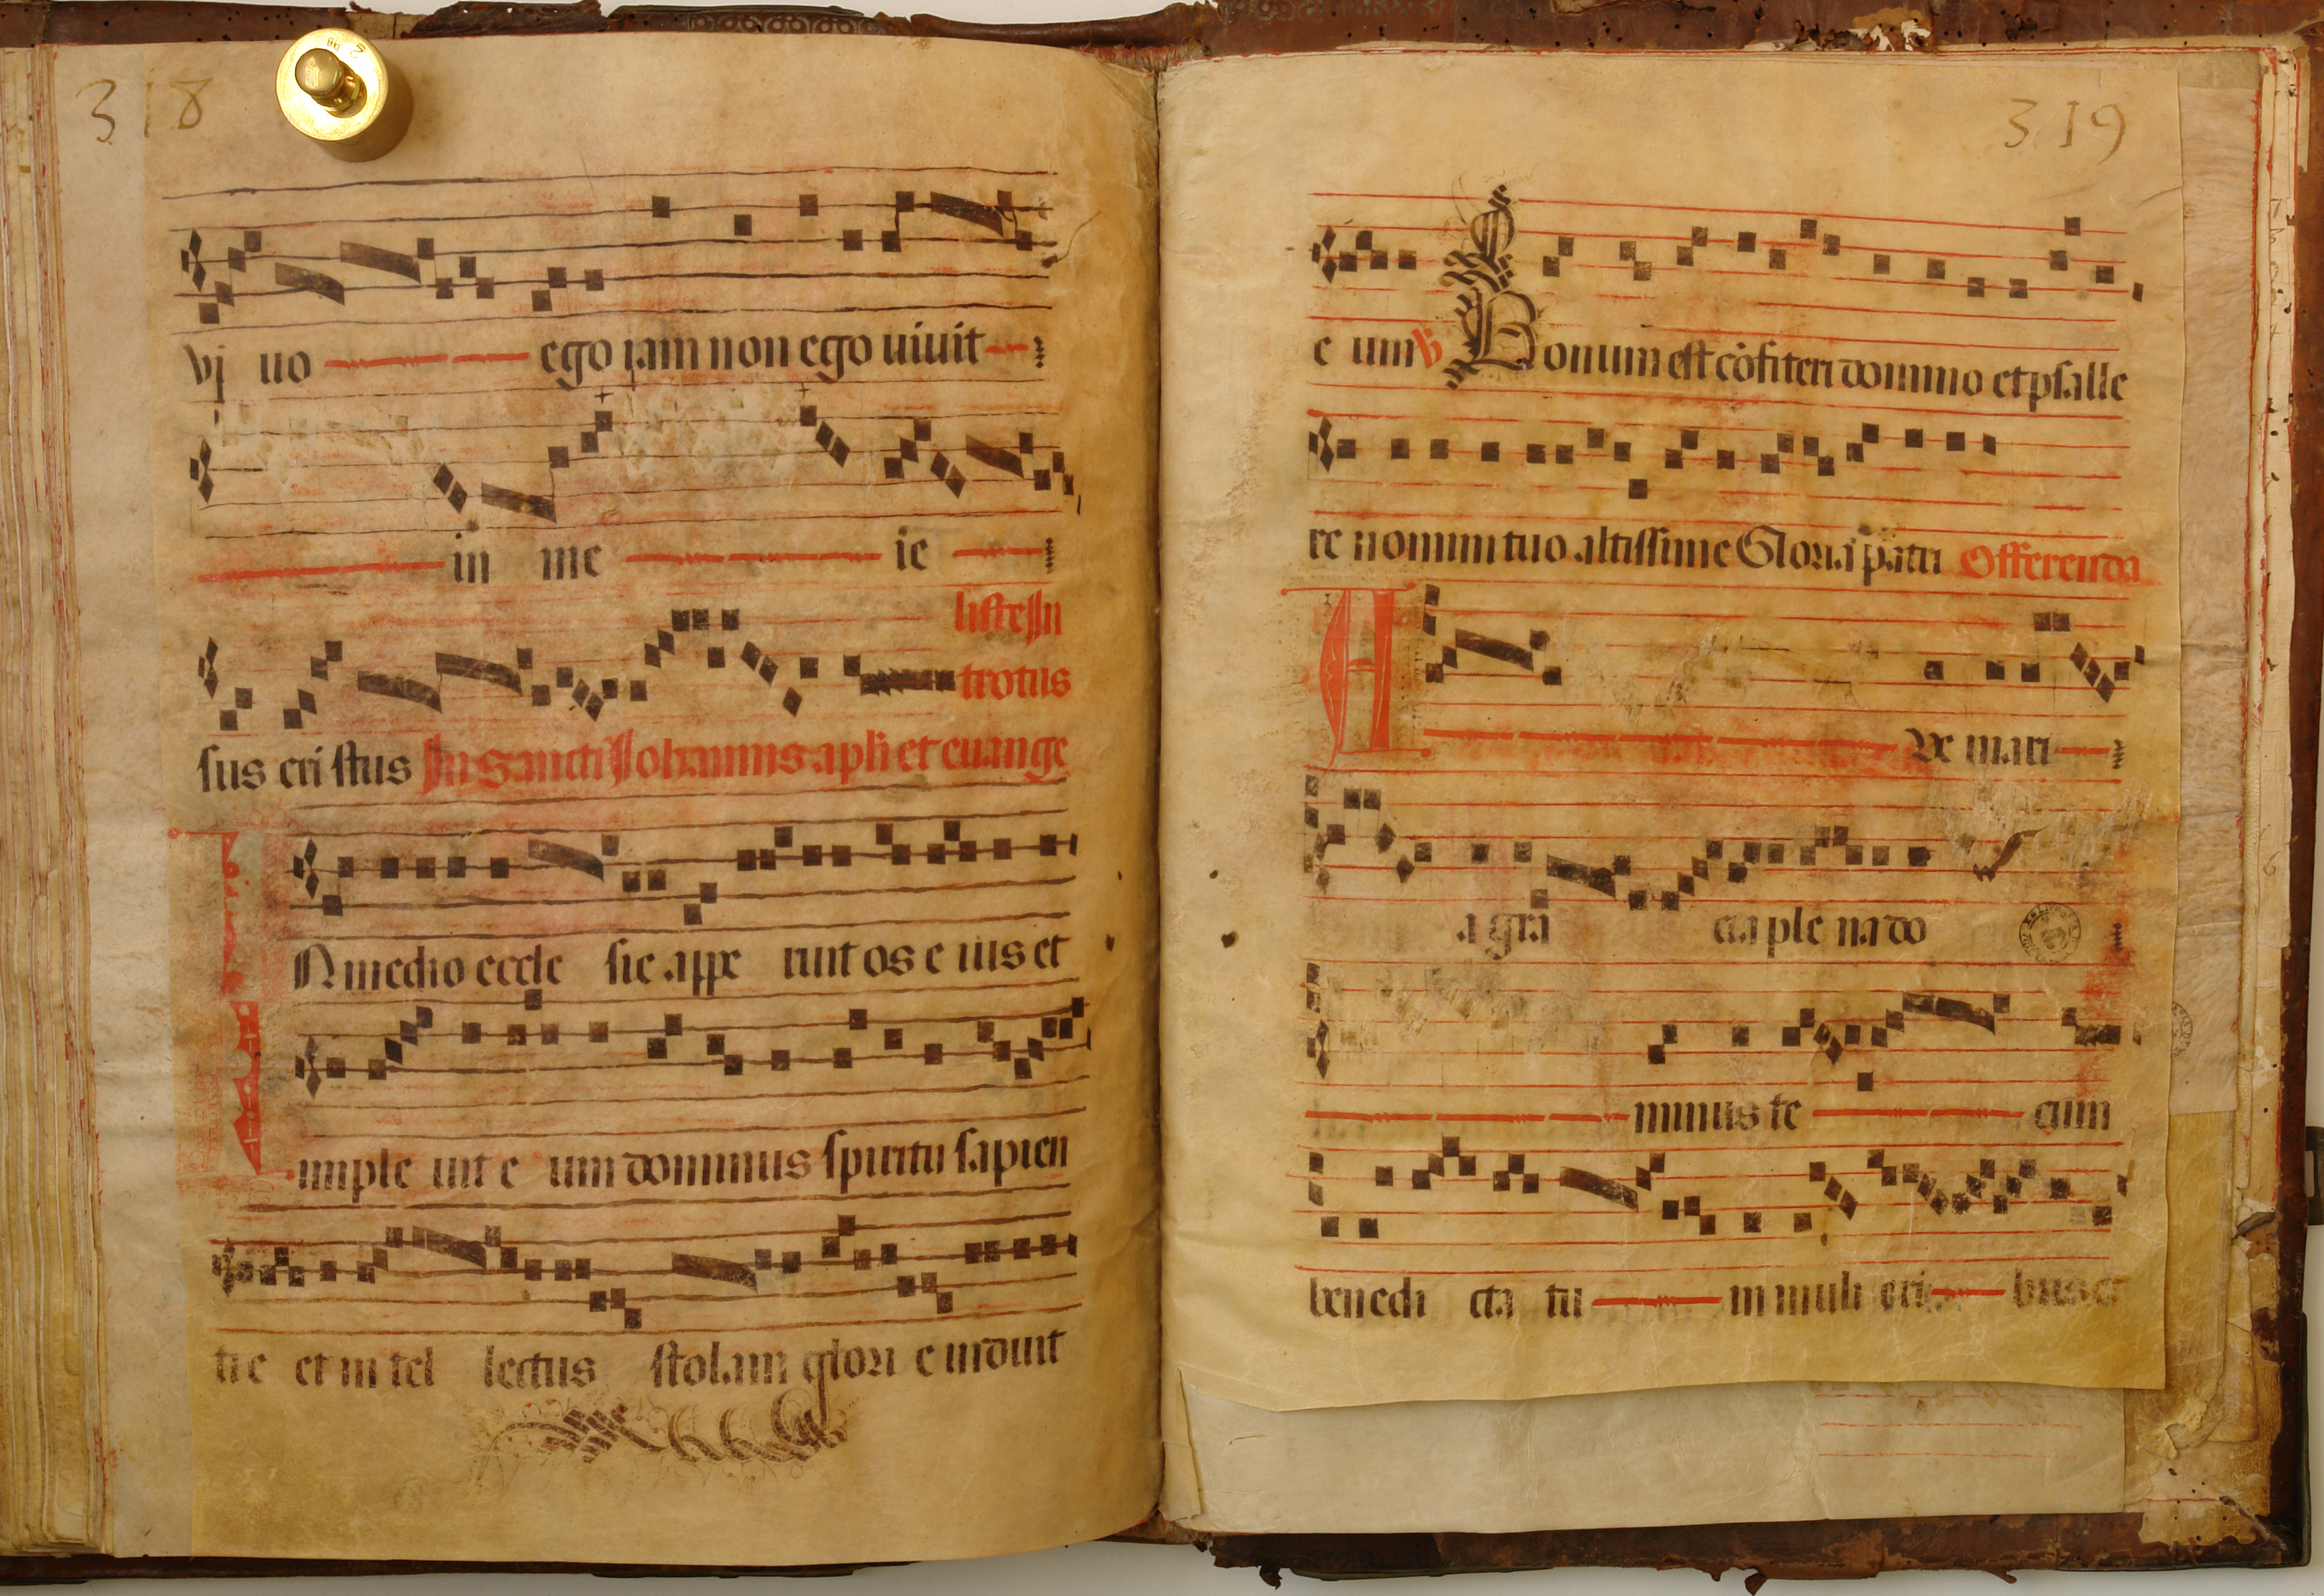 318
vj uo ego iam non ego uiuit
in me ie
listẹ In
troitus
sus cri stus In Sancti Iohannis apli et euange
IN medio eccle sie appe ruit os e ius et
imple uit e um dominus spiritu sapien
tie et in tel lectus stolam glori e induit
319
e um ℣ Bonum est cōfiteri domino et psalle
re nomini tuo altissime Gloria patri Offerenda
A Ve mari
a gra cia ple na do
minus te cum
benedi cta tu in muli eri bus et